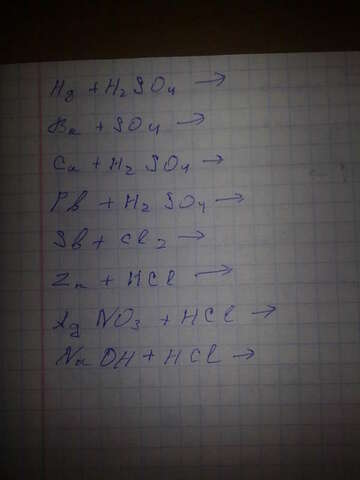 Hg + H₂SO₄ →
Ba + SO₄ →
Ca + H₂SO₄ →
Pb + H₂SO₄ →
Sb + Cl₂ →
Zn + HCl →
AgNO₃ + HCl →
NaOH + HCl →